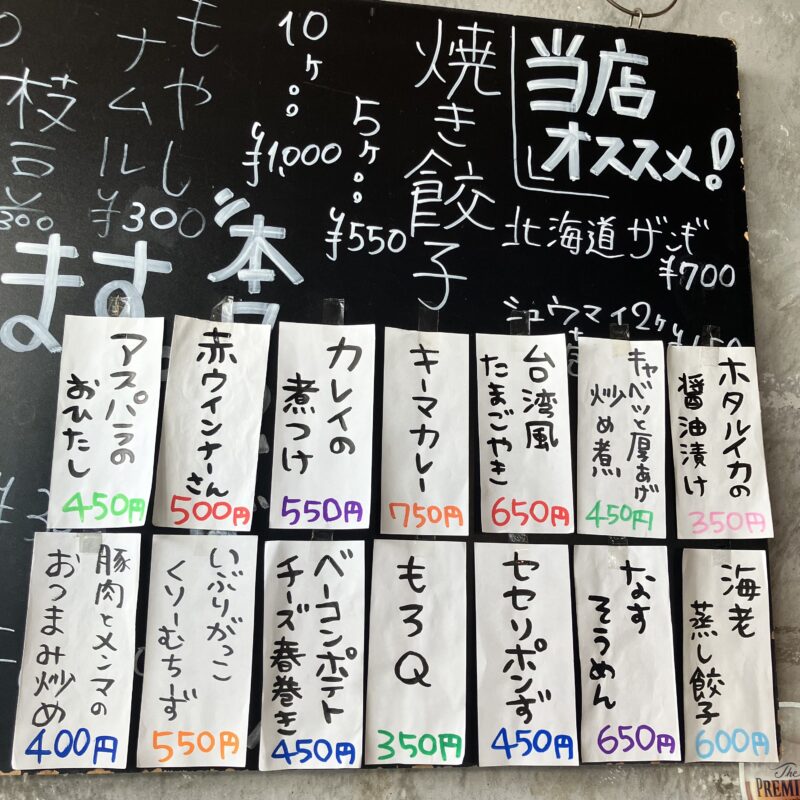 当店
オススメ!
北海道ザンギ
¥700
シュウマイ2ヶ
焼き餃子
5ヶ
¥550
10ヶ
¥1,000
もやし
ナムル
¥300
枝豆
¥300
本
ます
ホタルイカの
醤油漬け
350円
キャベツと厚あげ
炒め煮
450円
台湾風
たまごやき
650円
キーマカレー
750円
カレイの
煮つけ
550円
赤ウインナー
さん
500円
アスパラの
おひたし
450円
海老
蒸し餃子
600円
なす
そうめん
650円
セセリポンず
450円
もろQ
350円
ベーコンポテト
チーズ春巻き
450円
いぶりがっこ
くりーむちーず
550円
豚肉とメンマの
おつまみ炒め
400円
The
PREMI